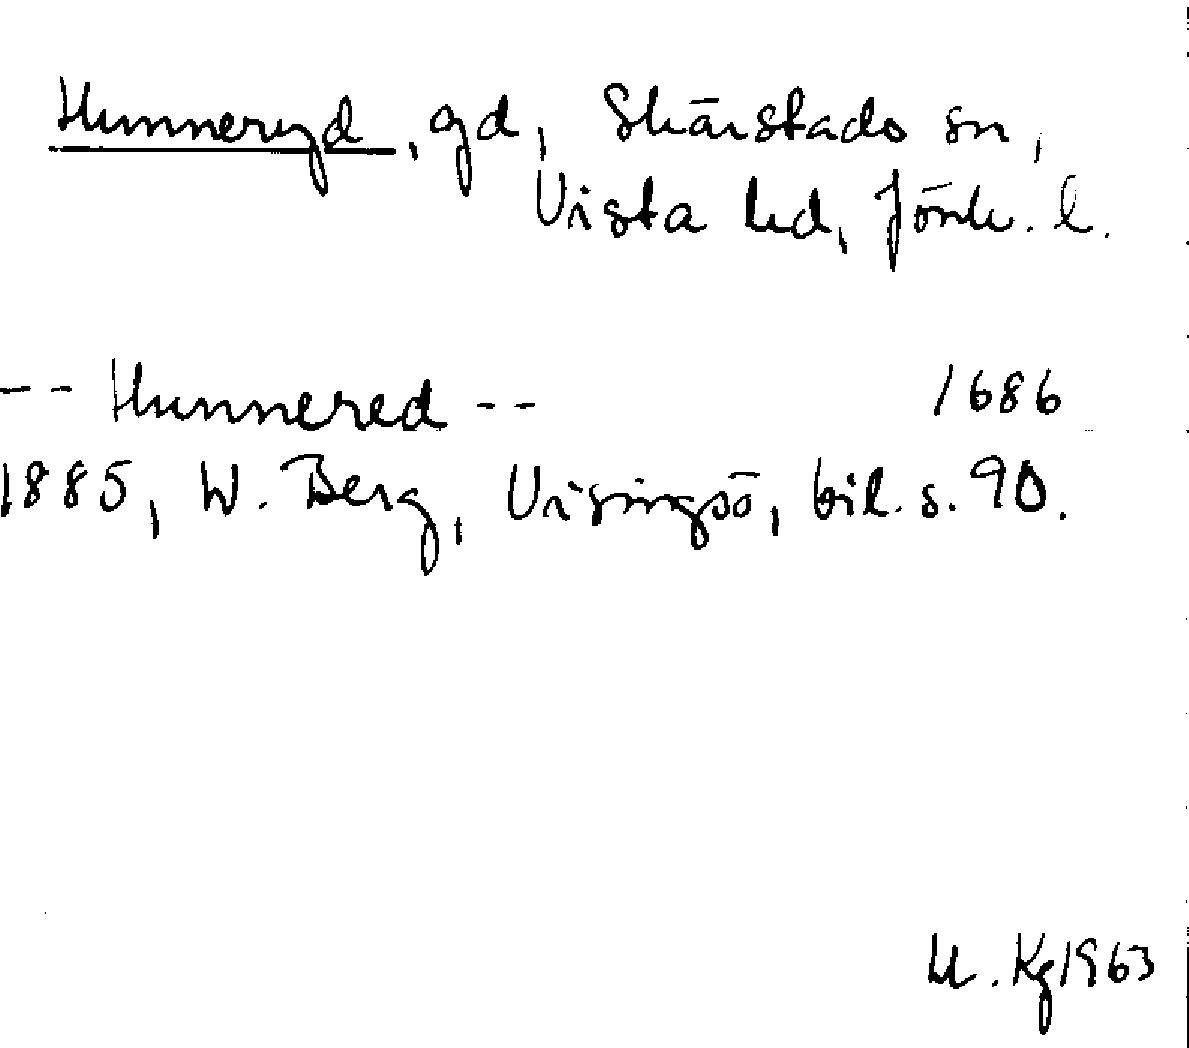 Hunneryd, gd, Skärstads sn,
Vista hd, Jönk. l.
-- Hunnered -- 1686
1885, W. Berg, Visingsö, bil. s. 90.
Kg 1963